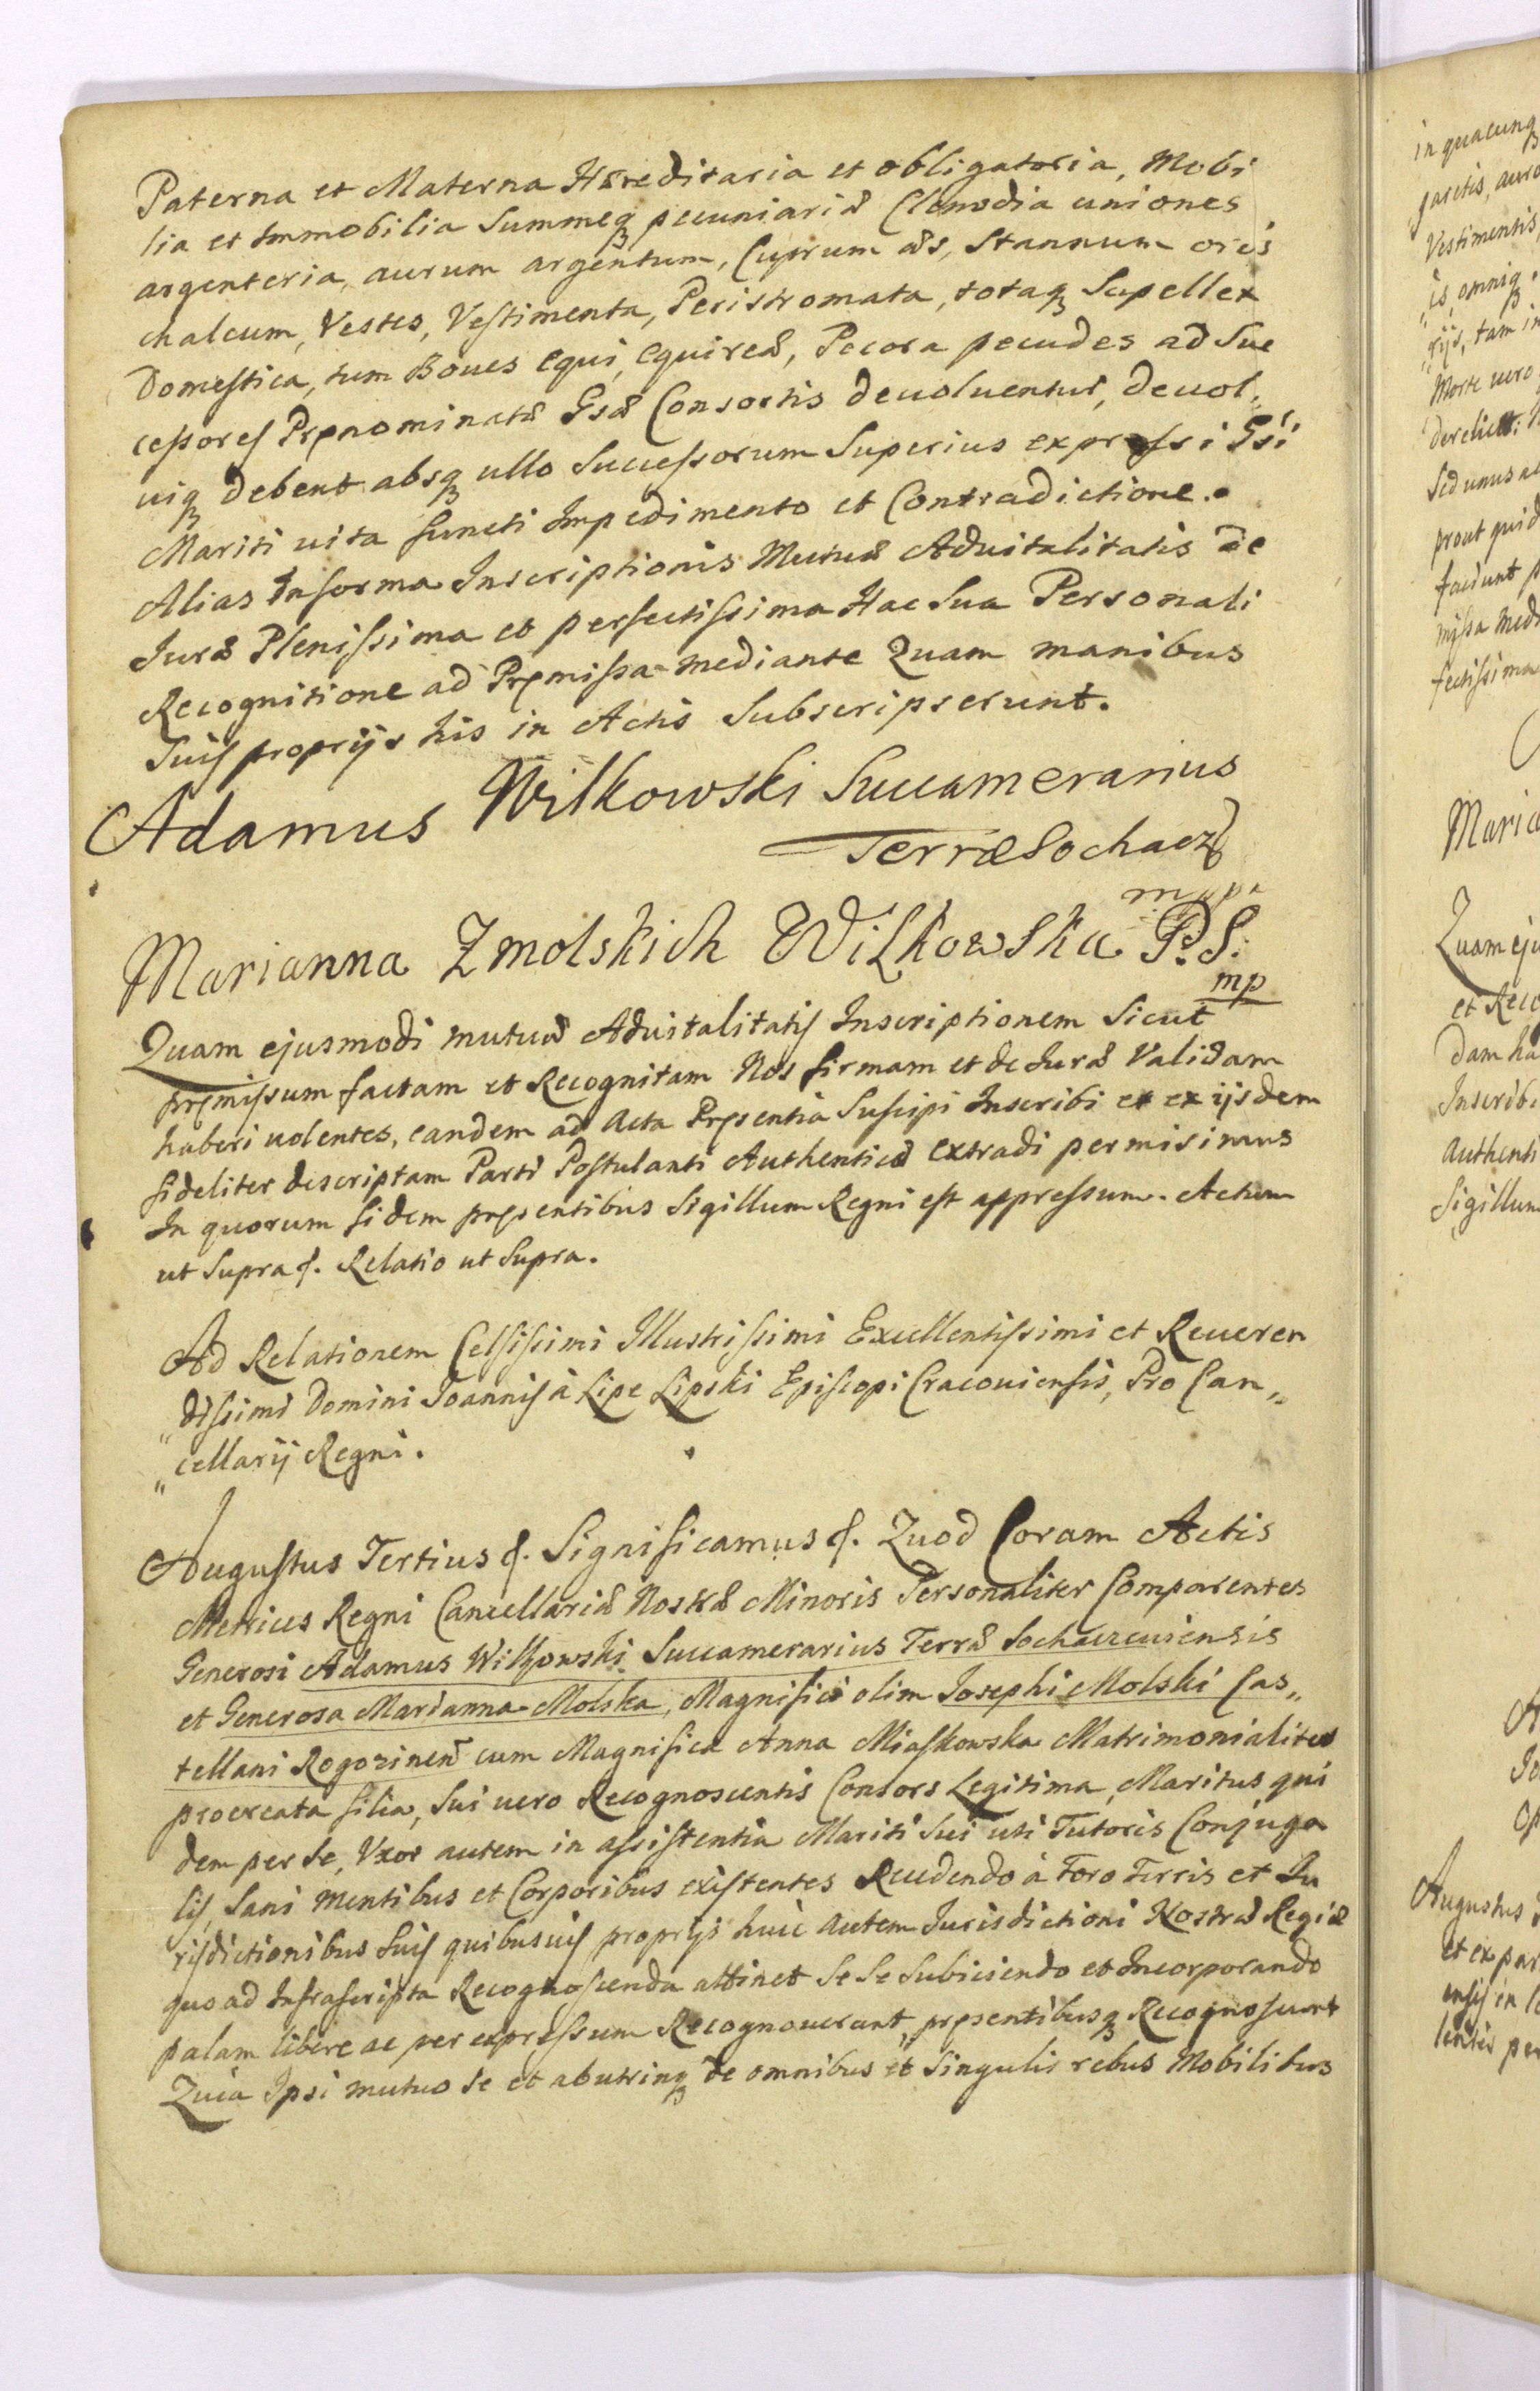 Paterna et Materna Hæreditaria et obligatoria, Mobi
lia et Immobilia Summeq pecuniariæ Clenodia uniones
argenteria, aurum argentum, Cuprum æs, Stannum ori
chalcum, Vestes, Vestimenta, Peristromata, totaq Supellex
Domestica, tum Boves equi, equireæ, Pecora pecudes ad Suc
cessores Pręnominatæ Gsæ Consortis devoluentur, devol,
viq debent absq ullo Successorum Superius expressi Gsi
Mariti vita functi Impedimento et Contradictione.
Alias In forma Inscriptionis Mutuæ Advitalitatis de
Jure Plenissima et perfectissima Hac Sua Personali
Recognitione ad Pręmissa mediante Quam manibus
Suis proprijs his in Actis Subscripserunt.
Adamus Wilkowski Succamerarius
Terræ Sochacz
mppa
Marianna Z molskich Wilkowska P. S.
mp
Quam ejusmodi mutuæ Advitalitatis Inscriptionem Sicut
pręmissum factam et Recognitam Nos firmam et de Jure Validam
haberi volentes, eandem ad Acta Pręsentia Suscipi Inscribi et ex ijsdem
fideliter descriptam Parti Postulanti Authentice extradi permisimus
In quorum fidem pręsentibus Sigillum Regni est appressum. Actum
ut Supra &. Relatio ut Supra.
Ad Relationem Celsissimi Illustrissimi Excellentissimi et Reveren
„dissimi Domini Joannis à Lipe Lipski Episcopi Cracoviensis, Pro Can„
„cellarij Regni.
Augustus Tertius &. Significamus &. Quod Coram Actis
Metrices Regni Cancellariæ Nostræ Minoris Personaliter Comparentes
Generosi Adamus Wilkowski Succamerarius Terræ Sochaczeviensis
et Generosa Marianna Molska, Magnifici olim Josephi Molski Cas„
tellani Rogozinen cum Magnifica Anna Miaskowska Matrimonialiter
procreata filia, Sui vero Recognoscentis Consors Legitima, Maritus qui
dem per Se, Uxor autem in assistentia Mariti Sui uti Tutoris Conjuga
lis, Sani mentibus et Corporibus existentes Recedendo à Foro Terris et Ju
risdictionibus Suis quibusvis proprijs huic autem Jurisdictioni Nostræ Regiæ
quo ad Infrascripta Recognoscenda attinet Se Se Subiiciendo et Incorporando
palam libere ac per expressum Recognoverunt, pręsentibusq Recognoscunt
Quia Ipsi mutuo Se et ab utrinq de omnibus et Singulis rebus Mobilibus
in quacunq
Vestimentis
is, omniq
rijs, tam in
Morte vero
derelict:
Sed unus al
prout quid
faciunt p
missa medi
fectissima
Maria
Quam eju
et Reco
dam ha
Inscribi
Authenti
Sigillum
Augustus
et ex par